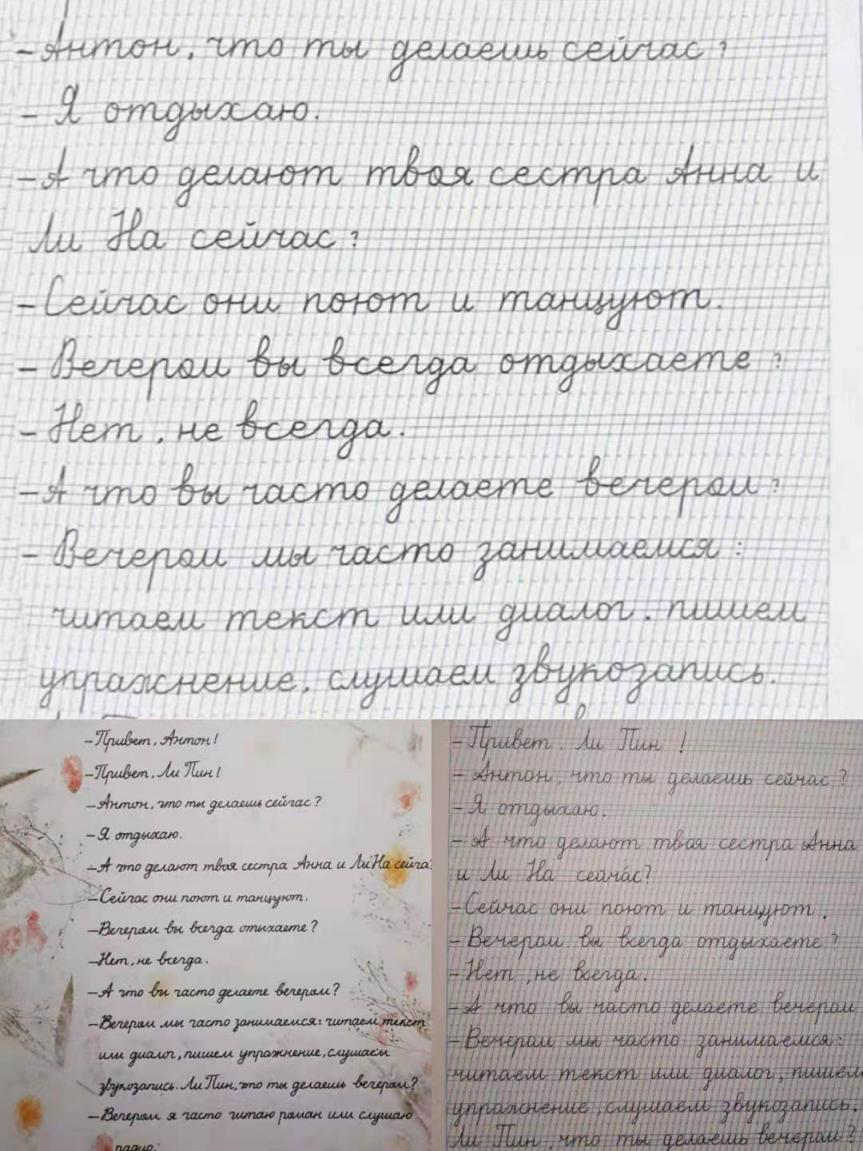 - Антон, что ты делаешь сейчас?
- Я отдыхаю.
- А что делают твоя сестра Анна и
Ли На сейчас?
- Сейчас они поют и танцуют.
- Вечером вы всегда отдыхаете?
- Нет, не всегда.
- А что вы часто делаете вечером?
- Вечером мы часто занимаемся:
читаем текст или диалог, пишем
упражнение, слушаем звукозапись.
- Привет, Антон!
- Привет, Ли Пин!
- Антон, что ты делаешь сейчас?
- Я отдыхаю.
- А что делают твоя сестра Анна и Ли На сейча
- Сейчас они поют и танцуют.
- Вечером вы всегда отыхаете?
- Нет, не всегда.
- А что вы часто делаете вечером?
- Вечером мы часто занимаемся: читаем текст
или диалог, пишем упражнение, слушаем
звукозапись. Ли Пин, что ты делаешь вечером?
- Вечером я часто читаю роман или слушаю
радио.
- Привет, Ли Пин!
- Антон, что ты делаешь сейчас?
- Я отдыхаю.
- А что делают твоя сестра Анна
и Ли На сейчас?
- Сейчас они поют и танцуют.
- Вечером вы всегда отдыхаете?
- Нет, не всегда.
- А что вы часто делаете вечером
- Вечером мы часто занимаемся:
читаем текст или диалог, пишем
упражнение, слушаем звукозапись.
Ли Пин, что ты делаешь вечером?